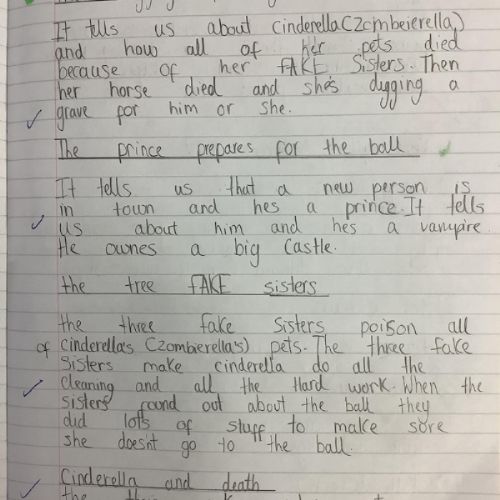 It tells us about cinderella (Zombeierella)
and how all of her pets died
because of her FAKE Sisters. Then
her horse died and she's dygging a
grave for him or she.
The prince prepares for the ball
It tells us that a new person is
in town and hes a prince. It tells
us about him and hes a vampire.
He ownes a big Castle.
the tree FAKE sisters
the three fake Sisters poison all
of cinderella's (Zombierella's) pets. The three fake
Sisters make cinderella do all the
cleaning and all the Hard work. When the
sisters found out about the ball they
did lots of stuff to make sore
she doesn't go to the ball.
Cinderella and death
the